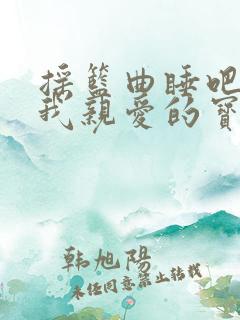 摇籃曲睡吧
我親愛的寶
韩旭陽
未经同意禁止转载